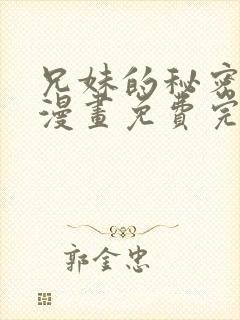 兄妹的秘密
漫畫免費完
郭金忠